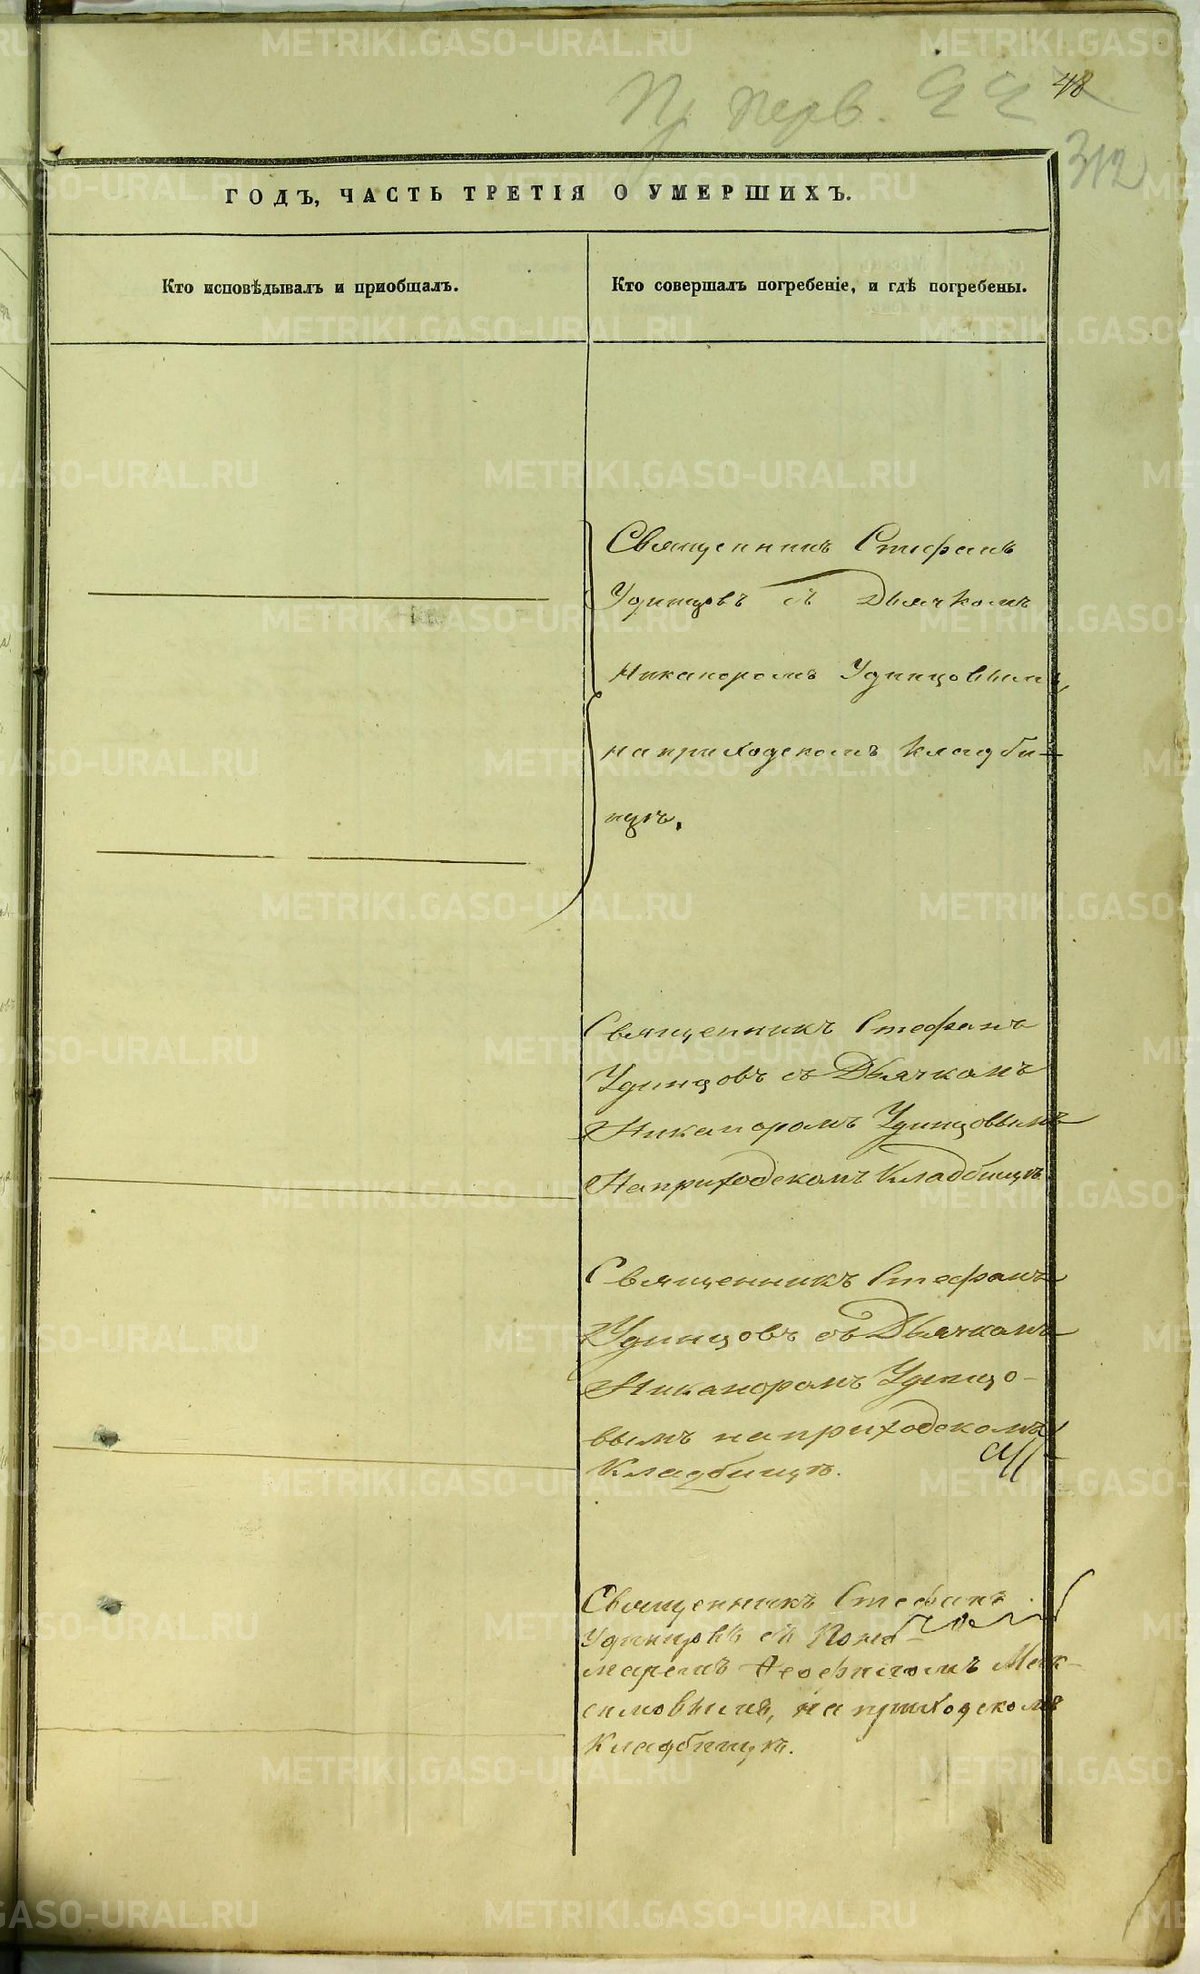 48
312
ГОДЪ, ЧАСТЬ ТРЕТІЯ О УМЕРШИХЪ.
Кто исповѣдывалъ и пріобщалъ.
Кто совершалъ погребеніе, и гдѣ погребены.
Священникъ Стефанъ
Удинцовъ съ Дьячкомъ
Никаноромъ Удинцовымъ,
на приходскомъ кладби-
щѣ.
Священникъ Стефанъ
Удинцовъ съ Дьячкомъ
Никаноромъ Удинцовымъ
На приходскомъ Кладбищѣ
Священникъ Стефанъ
Удинцовъ съ Дьячкомъ
Никаноромъ Удинцо-
вымъ на приходскомъ
Кладбищѣ.
Священникъ Стефанъ
Удинцовъ съ Поно-
маремъ Феофиломъ Мак-
симовымъ, на приходскомъ
Кладбищѣ.
METRIKI.GASO-URAL.RU